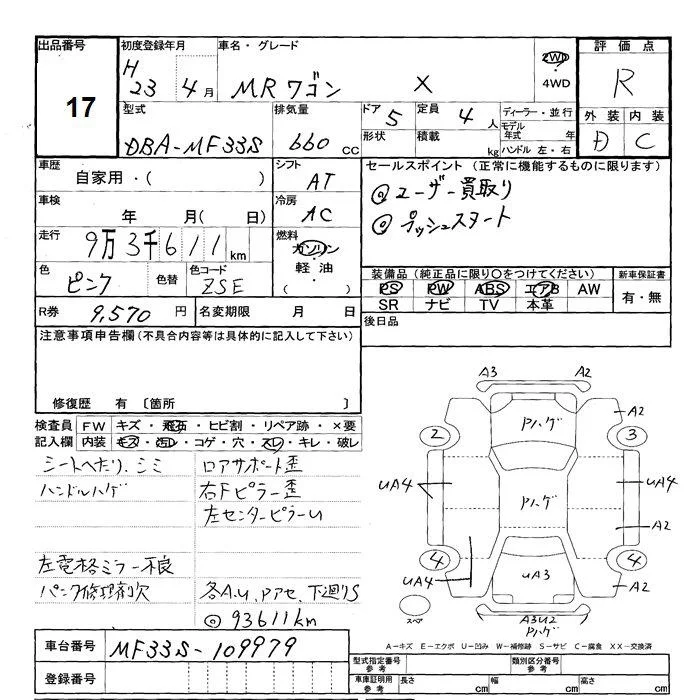 出品番号
17
初度登録年月
H 23 4月
車名・グレード
MRワゴン X
2WD
・
4WD
評価点
R
外装 内装
D C
型式
DBA-MF33S
排気量
660 cc
ドア 5
形状
定員 4 人
積載 kg
ディーラー・並行
モデル年式 年
ハンドル 左・右
車歴
自家用・( )
シフト
AT
車検
年 月( 日)
冷房
AC
走行
9万3千611km
燃料
ガソリン
・
軽油
・
( )
色
ピンク
色替
色コード
ZSE
R券 9,570 円
名変期限 月 日
セールスポイント (正常に機能するものに限ります)
◎ユーザー買取り
◎プッシュスタート
装備品 (純正品に限り〇をつけてください)
PS PW ABS エアB AW
SR ナビ TV 本革
新車保証書
有・無
後日品
注意事項申告欄(不具合内容等は具体的に記入して下さい)
修復歴 有 〔箇所 〕
検査員記入欄
FW キズ・飛石・ヒビ割・リペア跡・×要
内装 キズ・汚レ・コゲ・穴・スレ・キレ・破レ
シートヘたり、シミ
ハンドルハゲ
左電格ミラー不良
パンク修理剤欠
ロアサポート歪
右Fピラー歪
左センターピラーU
各A.U、Pアセ、下廻りS
◎93611km
A3 A2
A2
Pハゲ
2 3
UA4 UA4
Pハゲ
A2
4 4
UA4
UA3
A2
スペ
A3U2
Pハゲ
A-キズ E-エクボ U-凹み W-補修跡 S-サビ C-腐食 XX-交換済
車台番号 MF33S-109979
登録番号
型式指定番号 参考
類別区分番号 参考
車庫証明用 参考
長さ cm
幅 cm
高さ cm